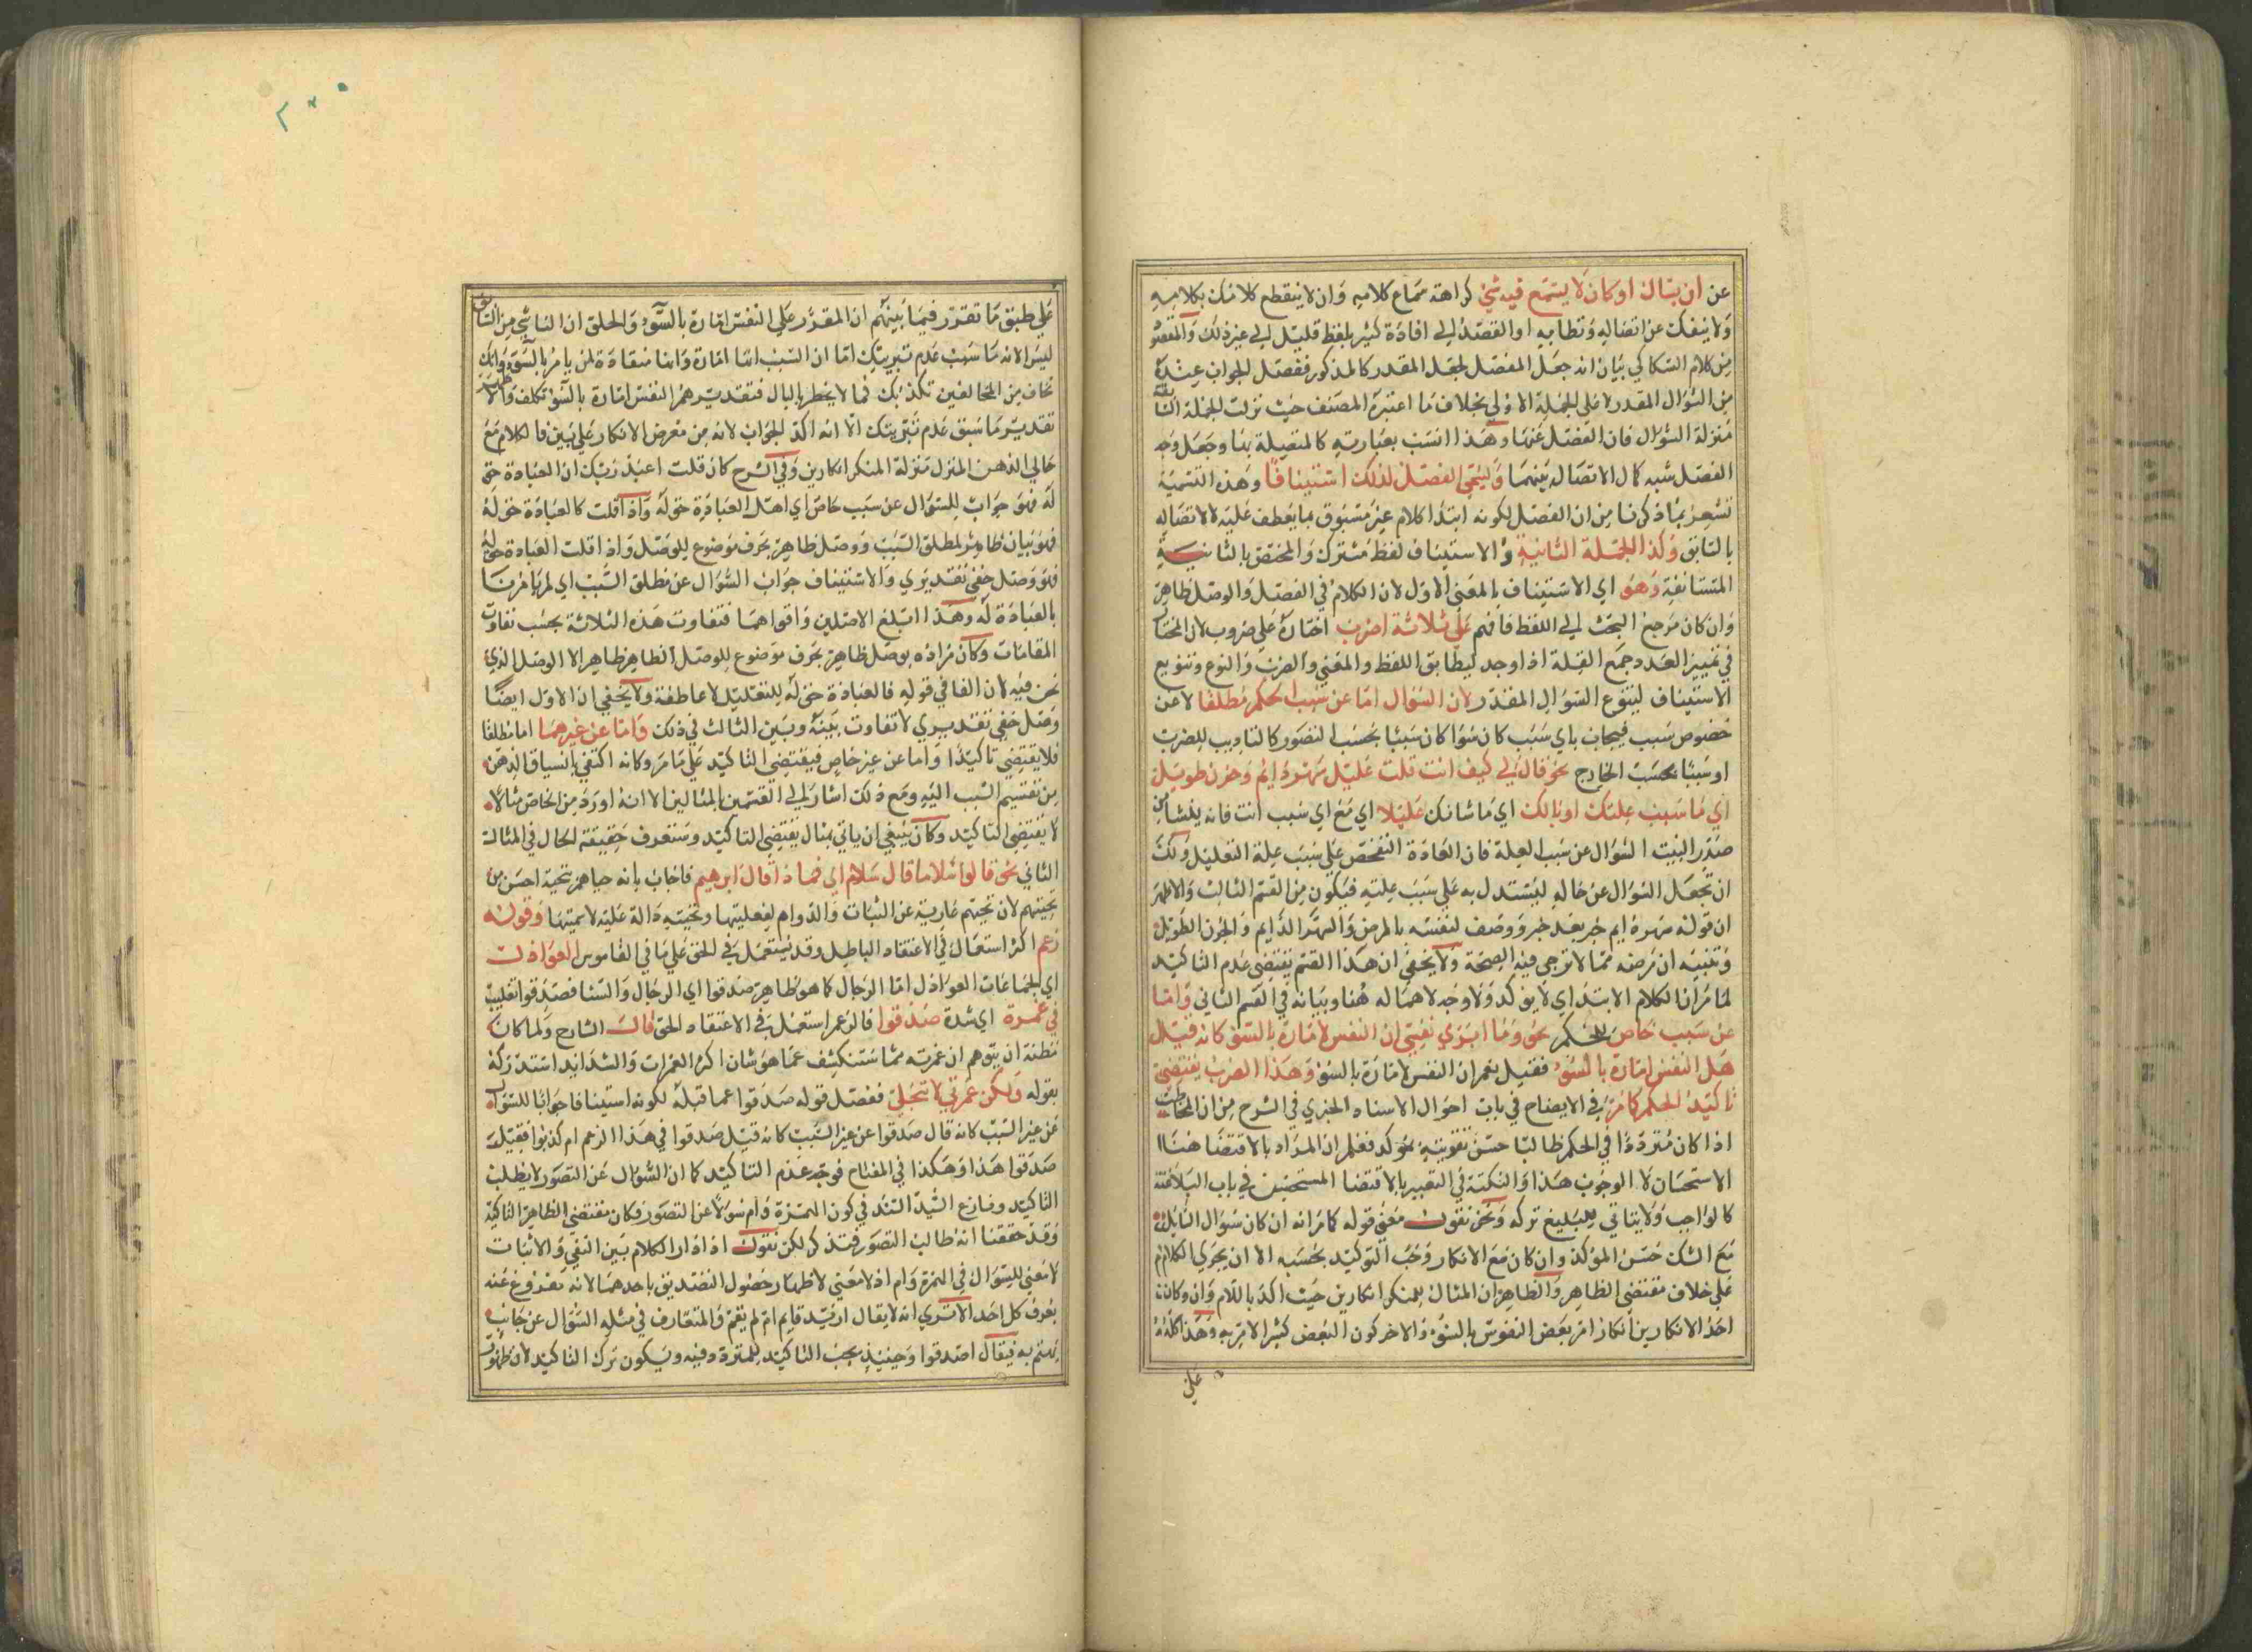 عن ان يسال او كان لا يسمع فيه شئ كراهة سماع كلامه وان لا ينقطع كلامك بكلامه
ولا ينفك عن اتصاله ونظامه او القصد الي افادة كثير بلفظ قليل الي غير ذلك والمفهو
من كلام السكاكي بيان انه جعل المفصل لجعل المقدر كالمذكور ففصل الجواب عنده
من السؤال المقدر لا علي الجملة الاولي بخلاف ما اعتبره المصنف حيث نزلت الجملة
منزلة السؤال فان الفصل عنها وهذا انسب بعبارته كالمتصلة بنا وجعل وجه
الفصل شبه كمال الاتصال بينهما وليسمي الفصل لذلك استينافا وهذه التسمية
تشعر بما ذكرنا من ان الفصل لكونه ابتدا كلام غير مسبوق بما يعطف عليه لا لاتصاله
بالسابق وكذا الجملة الثانية والاستيناف لفظ مشترك والمختص بالثانية
المستانفة وهو اي الاستيناف بالمعني الاول لان الكلام في الفصل والوصل ظاهر
وان كان مرجع البحث الي اللفظ فافهم علي ثلاثة اضرب اختاره علي ضروب لان المختار
في تمييز العدد جمع القلة اذا وجد ليطابق اللفظ والمعني والضرب والنوع وتنويع
الاستيناف لتنوع السؤال المقدر لان السؤال اما عن سبب الحكم مطلقا لا عن
خصوص سبب فيجاب باي سبب كان سوا كان سببا بحسب التصور كالتاديب للضرب
او سببا بحسب الخارج نحو قال لي كيف انت قلت عليل سهر دايم وحزن طويل
اي ما سبب علتك او بالك اي ما شانك عليلا اي مع اي سبب انت فانه ينشا من
صدر البيت السؤال عن سبب العلة فان العادة التفحص علي سبب علة التعليل ولك
ان تجعل السؤال عن حاله ليستدل به علي سبب علته فيكون من القسم الثالث والاظهر
ان قوله سهر دايم خبر بعد خبر ووصف لنفسه بالمرض والسهر الدايم والحزن الطويل
وتنبيه ان مرضه مما لا ترجي فيه الصحة ولا يخفي ان هذا القسم يقتضي عدم التاكيد
لما مر ان الكلام الابتداي لا يوكد ولا وجه لاهماله هنا وبيانه في القسم الثاني واما
عن سبب خاص للحكم نحو وما ابري نفسي ان النفس لامارة بالسو كانه قيل
هل النفس امارة بالسو فقيل نعم ان النفس لامارة بالسو وهذا الضرب يقتضي
تاكيد الحكم كما مر في الايضاح في باب احوال الاسناد الخبري في الشرح من ان المخاطب
اذا كان مترددا في الحكم طالبا حسن تقويته بموكد فعلم ان المراد بالاقتضا هنا
الاستحسان لا الوجوب هذا والنكتة في التعبير بالاقتضا المستحسن في باب البلاغة
كالواجب ولا يتاتي للبليغ تركه ونحن نقول معني قوله كما مر انه ان كان سؤال السايل
مع الشك حسن الموكد وان كان مع الانكار وجب التوكيد بحسبه الا ان يجري الكلام
علي خلاف مقتضي الظاهر والظاهر ان المثال للمنكر انكارين حيث اكد باللام وان وكانت
احد الانكارين انكار امر بعض النفوس بالسو والاخر كون البعض كثير الامر به وهذا كله
علي
علي طبق ما تقرر فيما بينهم ان المقدر علي النفس امارة بالسو والحلق ان الناشي من
ليس الا انه ما سبب عدم تبريتك اما ان السبب انها امارة وانها منقادة لمن يامر بالسو
تخاف من المخالفين تكذيبك فما لا يخطر بالبال فتقدير هم النفس امارة بالسو تكلف
تقدير ما سبق عدم تبريتك الا انه اكد الجواب لانه من معرض الانكار علي يبين فالكلام مع
خالي الذهن المنزل منزلة المنكر انكارين وفي الشرح كان قلت اعبد ربك ان العبادة حق
له فهو جواب للسؤال عن سبب خاص اي اهل العبادة حق له واذا قلت فالعبادة حق له
فهو بيان ظاهر لمطلق السبب ووصل ظاهر بحرف موضوع للوصل واذا قلت العبادة حق له
فهو وصل خفي تقديري والاستيناف جواب السؤال عن مطلق السبب اي لم تامرنا
بالعبادة له وهذا ابلغ الاصلين واقواهما فتفاوت هذه الثلاثة بحسب تفاوت
المقامات وكان مراده بوصل ظاهر بحرف موضوع للوصل الظاهر ظاهرا لا الوصل الذي
نحن فيه لان الفا في قوله فالعبادة حق له للتعليل لا عاطفة ولا يخفي ان الاول ايضا
وصل خفي تقديري لا تفاوت بينه وبين الثالث في ذلك واما عن غيرهما اما مطلقا
فلا يقتضي تاكيدا واما عن غير خاص فيقتضي التاكيد علي ما مر وكانه اكتفي بانسياق الذهن
من تقسيم السبب اليه ومع ذلك اشار الي القسمين بالمثالين الا انه اورد من الخاص مثالا
لا يقتضي التاكيد وكان ينبغي ان ياتي بمثال يقتضي التاكيد وستعرف حقيقة الحال في المثال
الثاني نحو قالوا سلاما قال سلام اي فماذا قال ابرهيم فاجاب بانه حياهم بتحية احسن من
تحيتهم لان تحيتهم عارية عن الثبات والدوام لفعليتها وتحيته دالة عليه لاسميتها وقوله
زعم اكثر استعماله في الاعتقاد الباطل وقد يستعمل في الحق علي ما في القاموس العواذل
اي الجماعات العواذل اما الرجال كما هو ظاهر صدقوا اي الرجال والنسا فصدقوا تغليب
في غمرة اي شدة صدقوا فالزعم استعمل في الاعتقاد الحق قال الشارح ولما كان
مظنة ان يتوهم ان غمرته مما ستنكشف عما هو شان اكثر الغمرات والشدايد استدركه
بقوله ولكن غمرتي لا تنجلي ففصل قوله صدقوا عما قبله لكونه استينافا جوابا للسؤال
عن غير السبب كانه قال صدقوا عن غير السبب كانه قيل صدقوا في هذا الزعم ام كذبوا فقيل
صدقوا هذا وهكذا في المفتاح فوجه عدم التاكيد كما ان السؤال عن التصور لا يطلب
التاكيد ونازع السيد السند في كون الهمزة وام سؤالا عن التصور فكان مقتضي الظاهر التاكيد
وقد حققنا انه طالب التصور فتذكر لكن نقول اذا دار الكلام بين النفي والاثبات
لا معني للسؤال في الهمزة وام اذ لا معني لاظهار حصول التصديق باحدهما لانه مفروغ عنه
يعرف كل احد الا تري انه لا يقال ازيد قايم ام لم يقم والمتعارف في مثله السؤال عن جانب
يهتم به فيقال اصدقوا وحينيذ يجب التاكيد للمتردد فيه ويكون ترك التاكيد لان ظهور